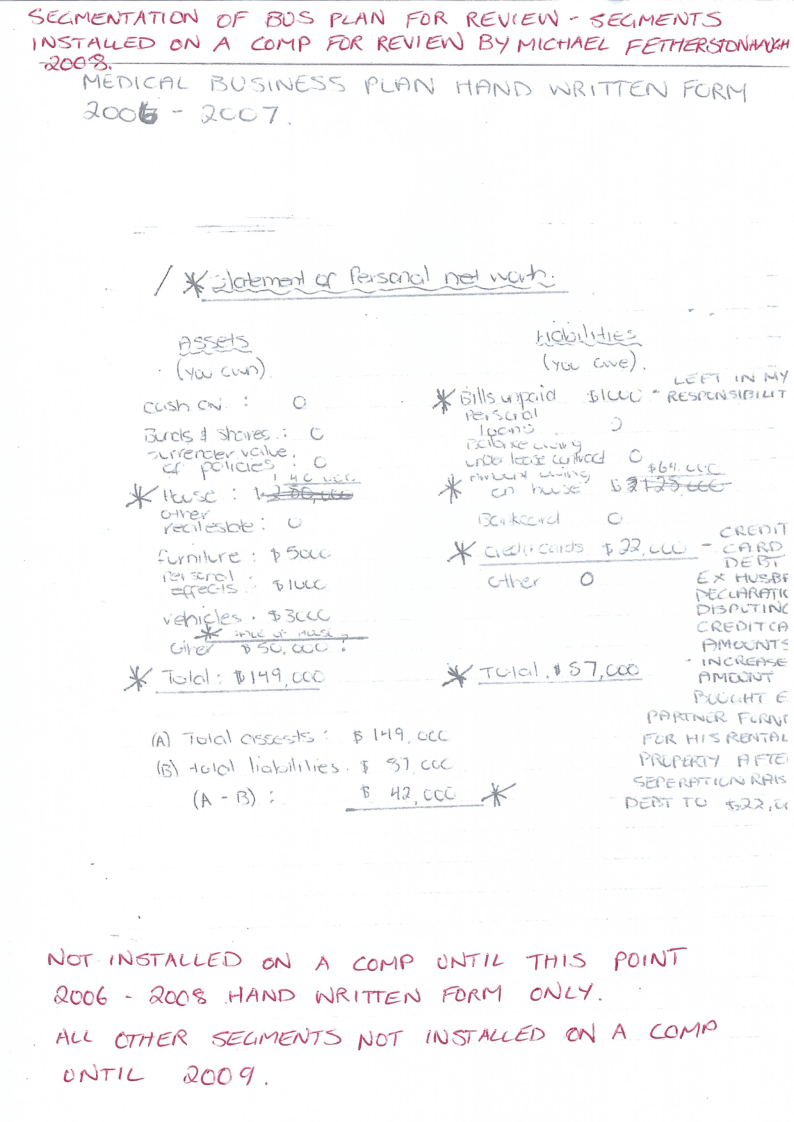 SEGMENTATION OF BUS PLAN FOR REVIEW - SEGMENTS
INSTALLED ON A COMP FOR REVIEW BY MICHAEL FETHERSTONHAUGH
2008.
MEDICAL BUSINESS PLAN HAND WRITTEN FORM
2006 - 2007.
/ * Statement of Personal net worth.
Assets
(you own)
cash on : 0
Bonds & shares : 0
surrender value
of policies : 0
140 000
* House :
other
realestate : 0
furniture : $5000
Personal
effects : $1000
vehicles . $3000
*
Other $50,000 ?
* Total : $149,000
Liabilities
(you owe).
* Bills unpaid $1000 - LEFT IN MY
RESPONSIBILIT
Personal
loans 0
Balance owing
under lease contract 0
$64.000
* amount owing
on house
Bankcard 0
* credit cards $22,000 -
other 0
* Total . $57,000
CREDIT
CARD
DEBT
EX HUSB
DECLARATIO
DISPUTING
CREDIT CA
AMOUNTS
- INCREASE
AMOUNT
BOUGHT E
PARTNER FURNI
FOR HIS RENTAL
PROPERTY AFTE
SEPERATION RAIS
DEBT TO $22,0
(A) Total assests : $ 149,000
(B) total liabilities . $ 57 000
(A - B) : $ 42,000 *
NOT INSTALLED ON A COMP UNTIL THIS POINT
2006 - 2008 HAND WRITTEN FORM ONLY.
ALL OTHER SEGMENTS NOT INSTALLED ON A COMP
UNTIL 2009.